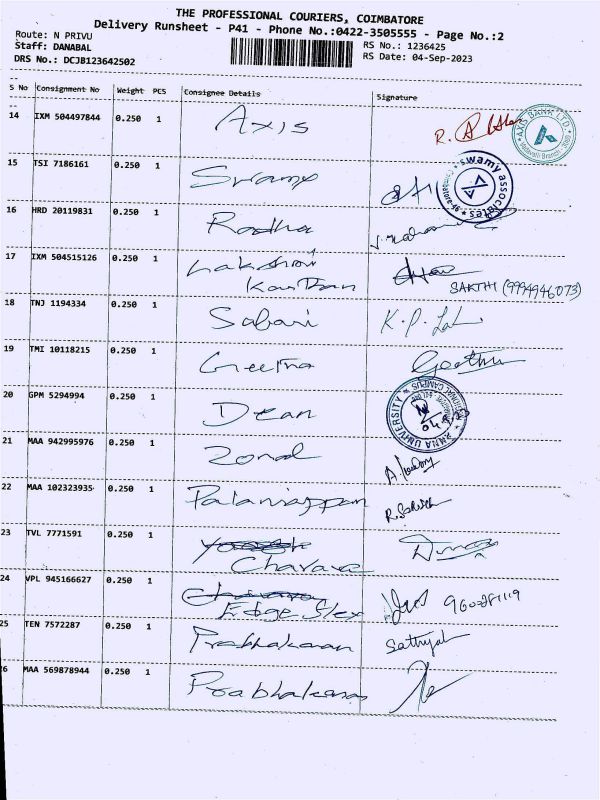 THE PROFESSIONAL COURIERS, COIMBATORE
Delivery Runsheet - P41 - Phone No.:0422-3505555 - Page No.:2
Route: N PRIVU
RS No.: 1236425
Staff: DANABAL
RS Date: 04-Sep-2023
DRS No.: DCJB123642502
S No Consignment No Weight PCS Consignee Details Signature
14 IXM 504497844 0.250 1 Axis R.
AXIS BANK LTD.
15 TSI 7186161 0.250 1 Swamy
swamy associates
16 HRD 20119831 0.250 1 Radha
17 IXM 504515126 0.250 1 Lakshmi
Kanthan SAKTHI (9994946073)
18 TNJ 1194334 0.250 1 Sabari K. P.
19 TMI 10118215 0.250 1 Geetha Geetha
20 GPM 5294994 0.250 1 Dean
ANNA UNIVERSITY REGIONAL CAMPUS
21 MAA 942995976 0.250 1 Zonal
22 MAA 102323935 0.250 1 Palaniappan
23 TVL 7771591 0.250 1
24 VPL 945166627 0.250 1
Edge flex
25 TEN 7572287 0.250 1 Prabhakaran Sathyah
26 MAA 569878944 0.250 1 Prabhakaran